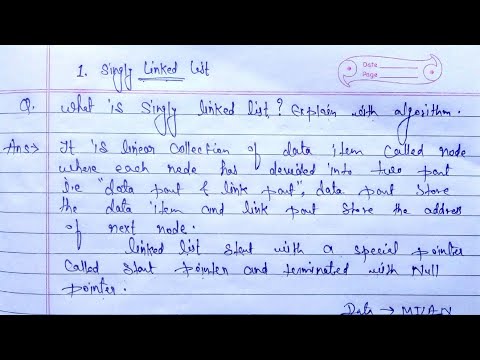 1. Singly Linked List
Date
Page
Q. What is Singly linked list? Explain with algorithm.
Ans→ It is linear collection of data item called node
where each node has devided into two part
i.e "data part & link part", data part store
the data item and link part store the address
of next node.
linked list start with a special pointer
called start pointer and terminated with Null
pointer.
Data →